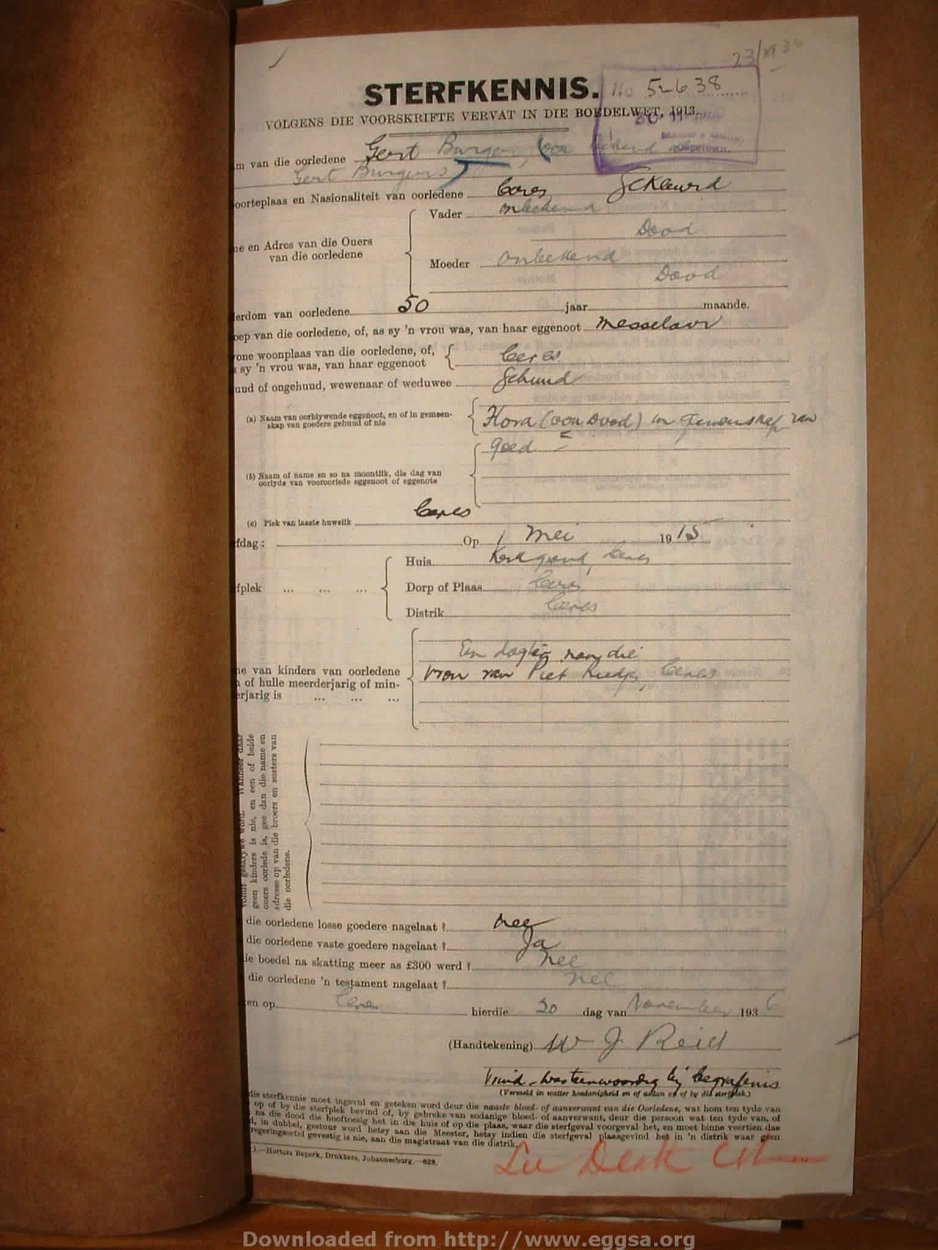 23/193
STERFKENNIS. No 52638
VOLGENS DIE VOORSKRIFTE VERVAT IN DIE BOEDELWET, 1913.
am van die oorledene Gert Burger (ook bekend as
Gert Burgers)
oorteplaas en Nasionaliteit van oorledene Ceres Gekleurd
Vader onbekend
Dood
ne en Adres van die Ouers
van die oorledene
Moeder onbekend
Dood
derdom van oorledene 50 jaar maande.
oep van die oorledene, of, as sy 'n vrou was, van haar eggenoot Messelaar
one woonplaas van die oorledene, of,
sy 'n vrou was, van haar eggenoot Ceres
uud of ongehuud, wewenaar of weduwee Gehuud
(a) Naam van oorblywende eggenoot, en of in gemeen-
skap van goedere gehuud of nie Flora (ook Dood) in gemeenskap van
goed
(b) Naam of name en so na moontlik, die dag van
oorlyde van vooroorlede eggenoot of eggenote
(c) Plek van laaste huwelik Ceres
fdag: Op 1 Mei 1915
Huis Kerkgrond, Ceres
fplek ... ... ... Dorp of Plaas Ceres
Distrik Ceres
Een dogter nou die
ne van kinders van oorledene vrou van Piet Ceres
n of hulle meerderjarig of min-
erjarig is ... ... ...
geen kinders is nie, en een of beide
ouers oorlede is, gee dan die name en
adresse op van die broers en susters van
die oorledene.
die oorledene losse goedere nagelaat? Nee
die oorledene vaste goedere nagelaat? Ja
ie boedel na skatting meer as £300 werd? Nee
die oorledene 'n testament nagelaat? Nee
en op Ceres hierdie 20 dag van November 1936
(Handtekening) W J Reid
Vriend - was teenwoordig by begrafenis
(Vermeld in watter hoedanigheid en of anders en of by die sterfplek.)
die sterfkennis moet ingevul en geteken word deur die naaste bloed- of aanverwant van die Oorledene, wat hom ten tyde van
op of by die sterfplek bevind of, by gebreke van sodanige bloed- of aanverwant, deur die persoon wat ten tyde van, of
na die dood die hooftoesig het in die huis of op die plaas, waar die sterfgeval voorgeval het, en moet binne veertien dae
, in dubbel, gestuur word hetsy aan die Meester, hetsy indien die sterfgeval plaasgevind het in 'n distrik waar geen
regeringsetel gevestig is nie, aan die magistraat van die distrik.
—Hortors Beperk, Drukkers, Johannesburg.—628.
Downloaded from http://www.eggsa.org